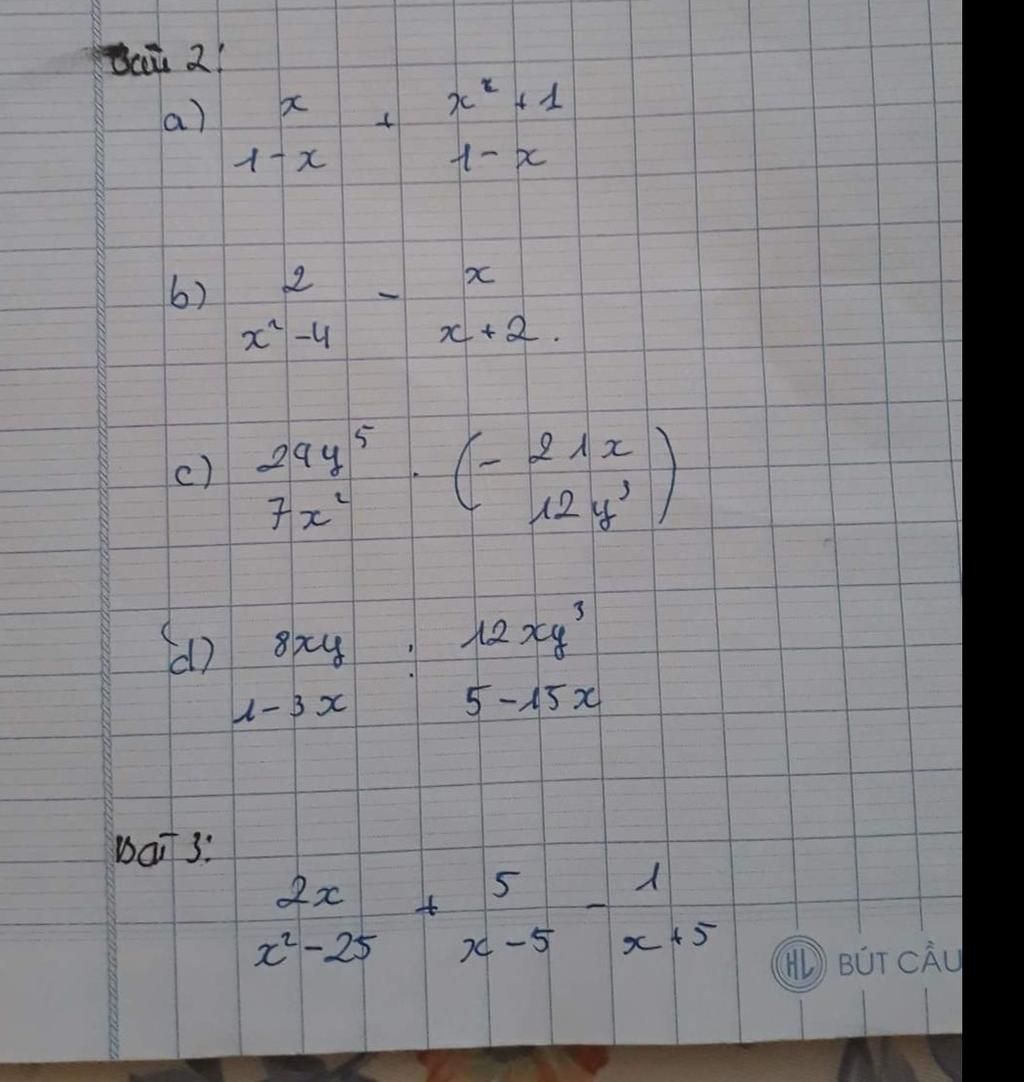 Bài 2:
a) x/(1-x) + (x²+1)/(1-x)
b) 2/(x²-4) - x/(x+2).
c) 29y⁵/7x² . (- 21x/12y³)
d) 8xy/(1-3x) : 12xy³/(5-15x)
Bài 3:
2x/(x²-25) + 5/(x-5) - 1/(x+5)
HL BÚT CẦU